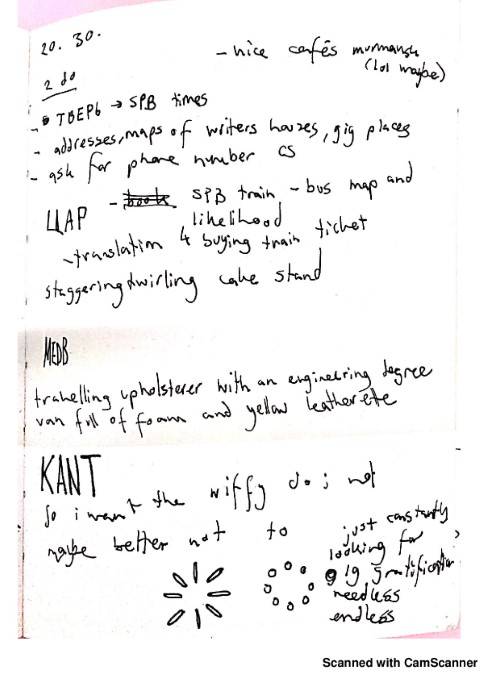 20. 30.
- nice cafés murmansk
(lol maybe)
2 do
- TBEPb → SPB times
- addresses, maps of writers houses, gig places
- ask for phone number CS
- book SPB train - bus map and
likelihood
ЦАР
- translation 4 buying train ticket
staggering twirling cake stand
MEDB
travelling upholsterer with an engineering degree
van full of foam and yellow leatherete
KANT
so i want the wiffy do i not
maybe better not to
just constantly
looking for
ig gratification
needless
endless
Scanned with CamScanner